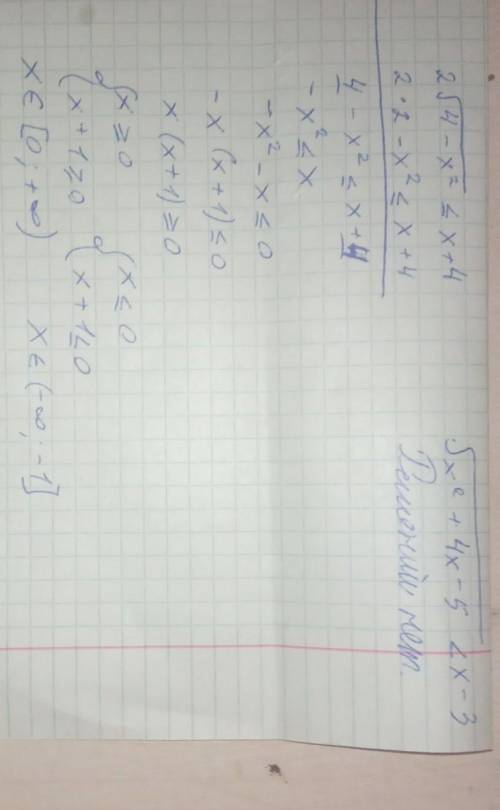 2√4 - x² ≤ x+4
2·2 - x² ≤ x+4
4 - x² ≤ x+4
-x² ≤ x
-x² - x ≤ 0
-x (x+1) ≤ 0
x (x+1) ≥ 0
{ x ≥ 0 { x ≤ 0
{ x+1 ≥ 0 { x+1 ≤ 0
x ∈ [0; +∞) x ∈ (-∞; -1]
√x² + 4x - 5 < x - 3
Решений нет.